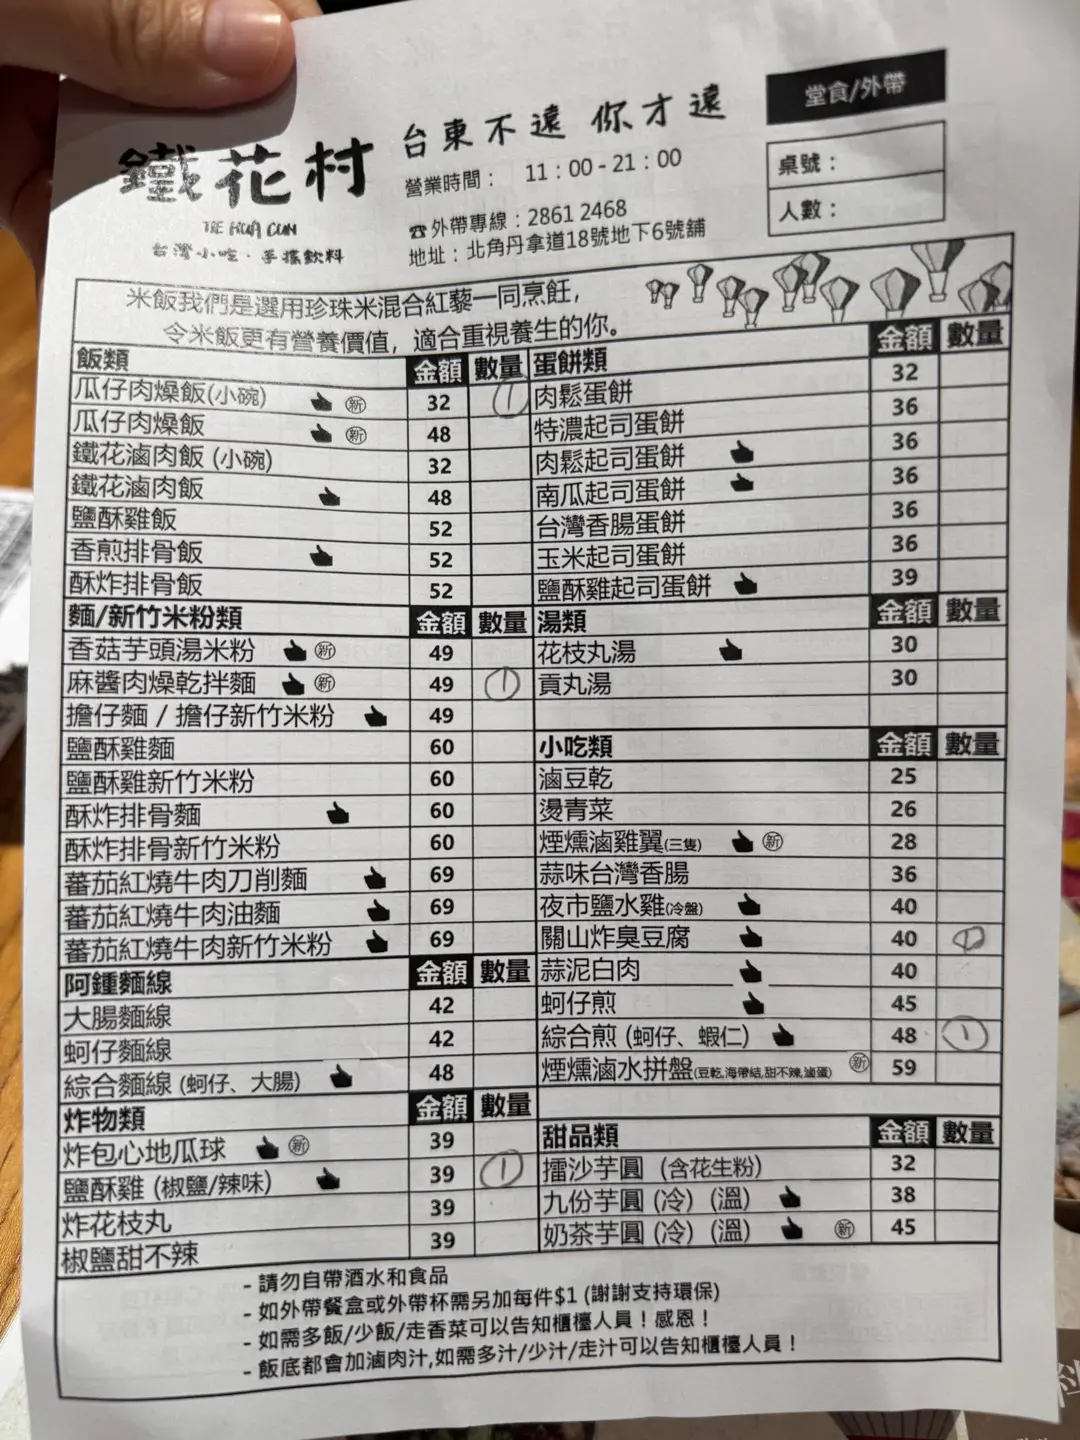 鐵花村
TIE HUA CUN
台灣小吃·手搖飲料
台東不遠 你才遠
營業時間： 11：00 - 21：00
☎外帶專線：2861 2468
地址：北角丹拿道18號地下6號舖
堂食/外帶
桌號：
人數：
米飯我們是選用珍珠米混合紅藜一同烹飪，
令米飯更有營養價值，適合重視養生的你。
飯類 金額 數量
瓜仔肉燥飯(小碗) 新 32 1
瓜仔肉燥飯 新 48
鐵花滷肉飯 (小碗) 32
鐵花滷肉飯 48
鹽酥雞飯 52
香煎排骨飯 52
酥炸排骨飯 52
麵/新竹米粉類 金額 數量
香菇芋頭湯米粉 新 49
麻醬肉燥乾拌麵 新 49 1
擔仔麵 / 擔仔新竹米粉 49
鹽酥雞麵 60
鹽酥雞新竹米粉 60
酥炸排骨麵 60
酥炸排骨新竹米粉 60
蕃茄紅燒牛肉刀削麵 69
蕃茄紅燒牛肉油麵 69
蕃茄紅燒牛肉新竹米粉 69
阿鍾麵線 金額 數量
大腸麵線 42
蚵仔麵線 42
綜合麵線 (蚵仔、大腸) 48
炸物類 金額 數量
炸包心地瓜球 新 39
鹽酥雞 (椒鹽/辣味) 39 1
炸花枝丸 39
椒鹽甜不辣 39
蛋餅類 金額 數量
肉鬆蛋餅 32
特濃起司蛋餅 36
肉鬆起司蛋餅 36
南瓜起司蛋餅 36
台灣香腸蛋餅 36
玉米起司蛋餅 36
鹽酥雞起司蛋餅 39
湯類 金額 數量
花枝丸湯 30
貢丸湯 30
小吃類 金額 數量
滷豆乾 25
燙青菜 26
煙燻滷雞翼(三隻) 新 28
蒜味台灣香腸 36
夜市鹽水雞(冷盤) 40
關山炸臭豆腐 40
蒜泥白肉 40
蚵仔煎 45
綜合煎 (蚵仔、蝦仁) 48 1
煙燻滷水拼盤(豆乾,海帶結,甜不辣,滷蛋) 新 59
甜品類 金額 數量
擂沙芋圓 (含花生粉) 32
九份芋圓 (冷) (溫) 38
奶茶芋圓 (冷) (溫) 新 45
- 請勿自帶酒水和食品
- 如外帶餐盒或外帶杯需另加每件$1 (謝謝支持環保)
- 如需多飯/少飯/走香菜可以告知櫃檯人員！感恩！
- 飯底都會加滷肉汁,如需多汁/少汁/走汁可以告知櫃檯人員！